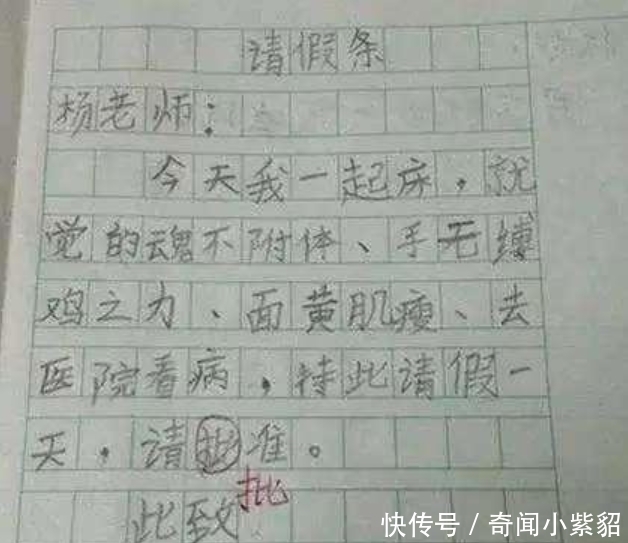 请假条
杨老师：
今天我一起床，就
觉的魂不附体、手无缚
鸡之力、面黄肌瘦、去
医院看病，特此请假一
天，请批准。
批
此致
快传号/奇闻小紫貂